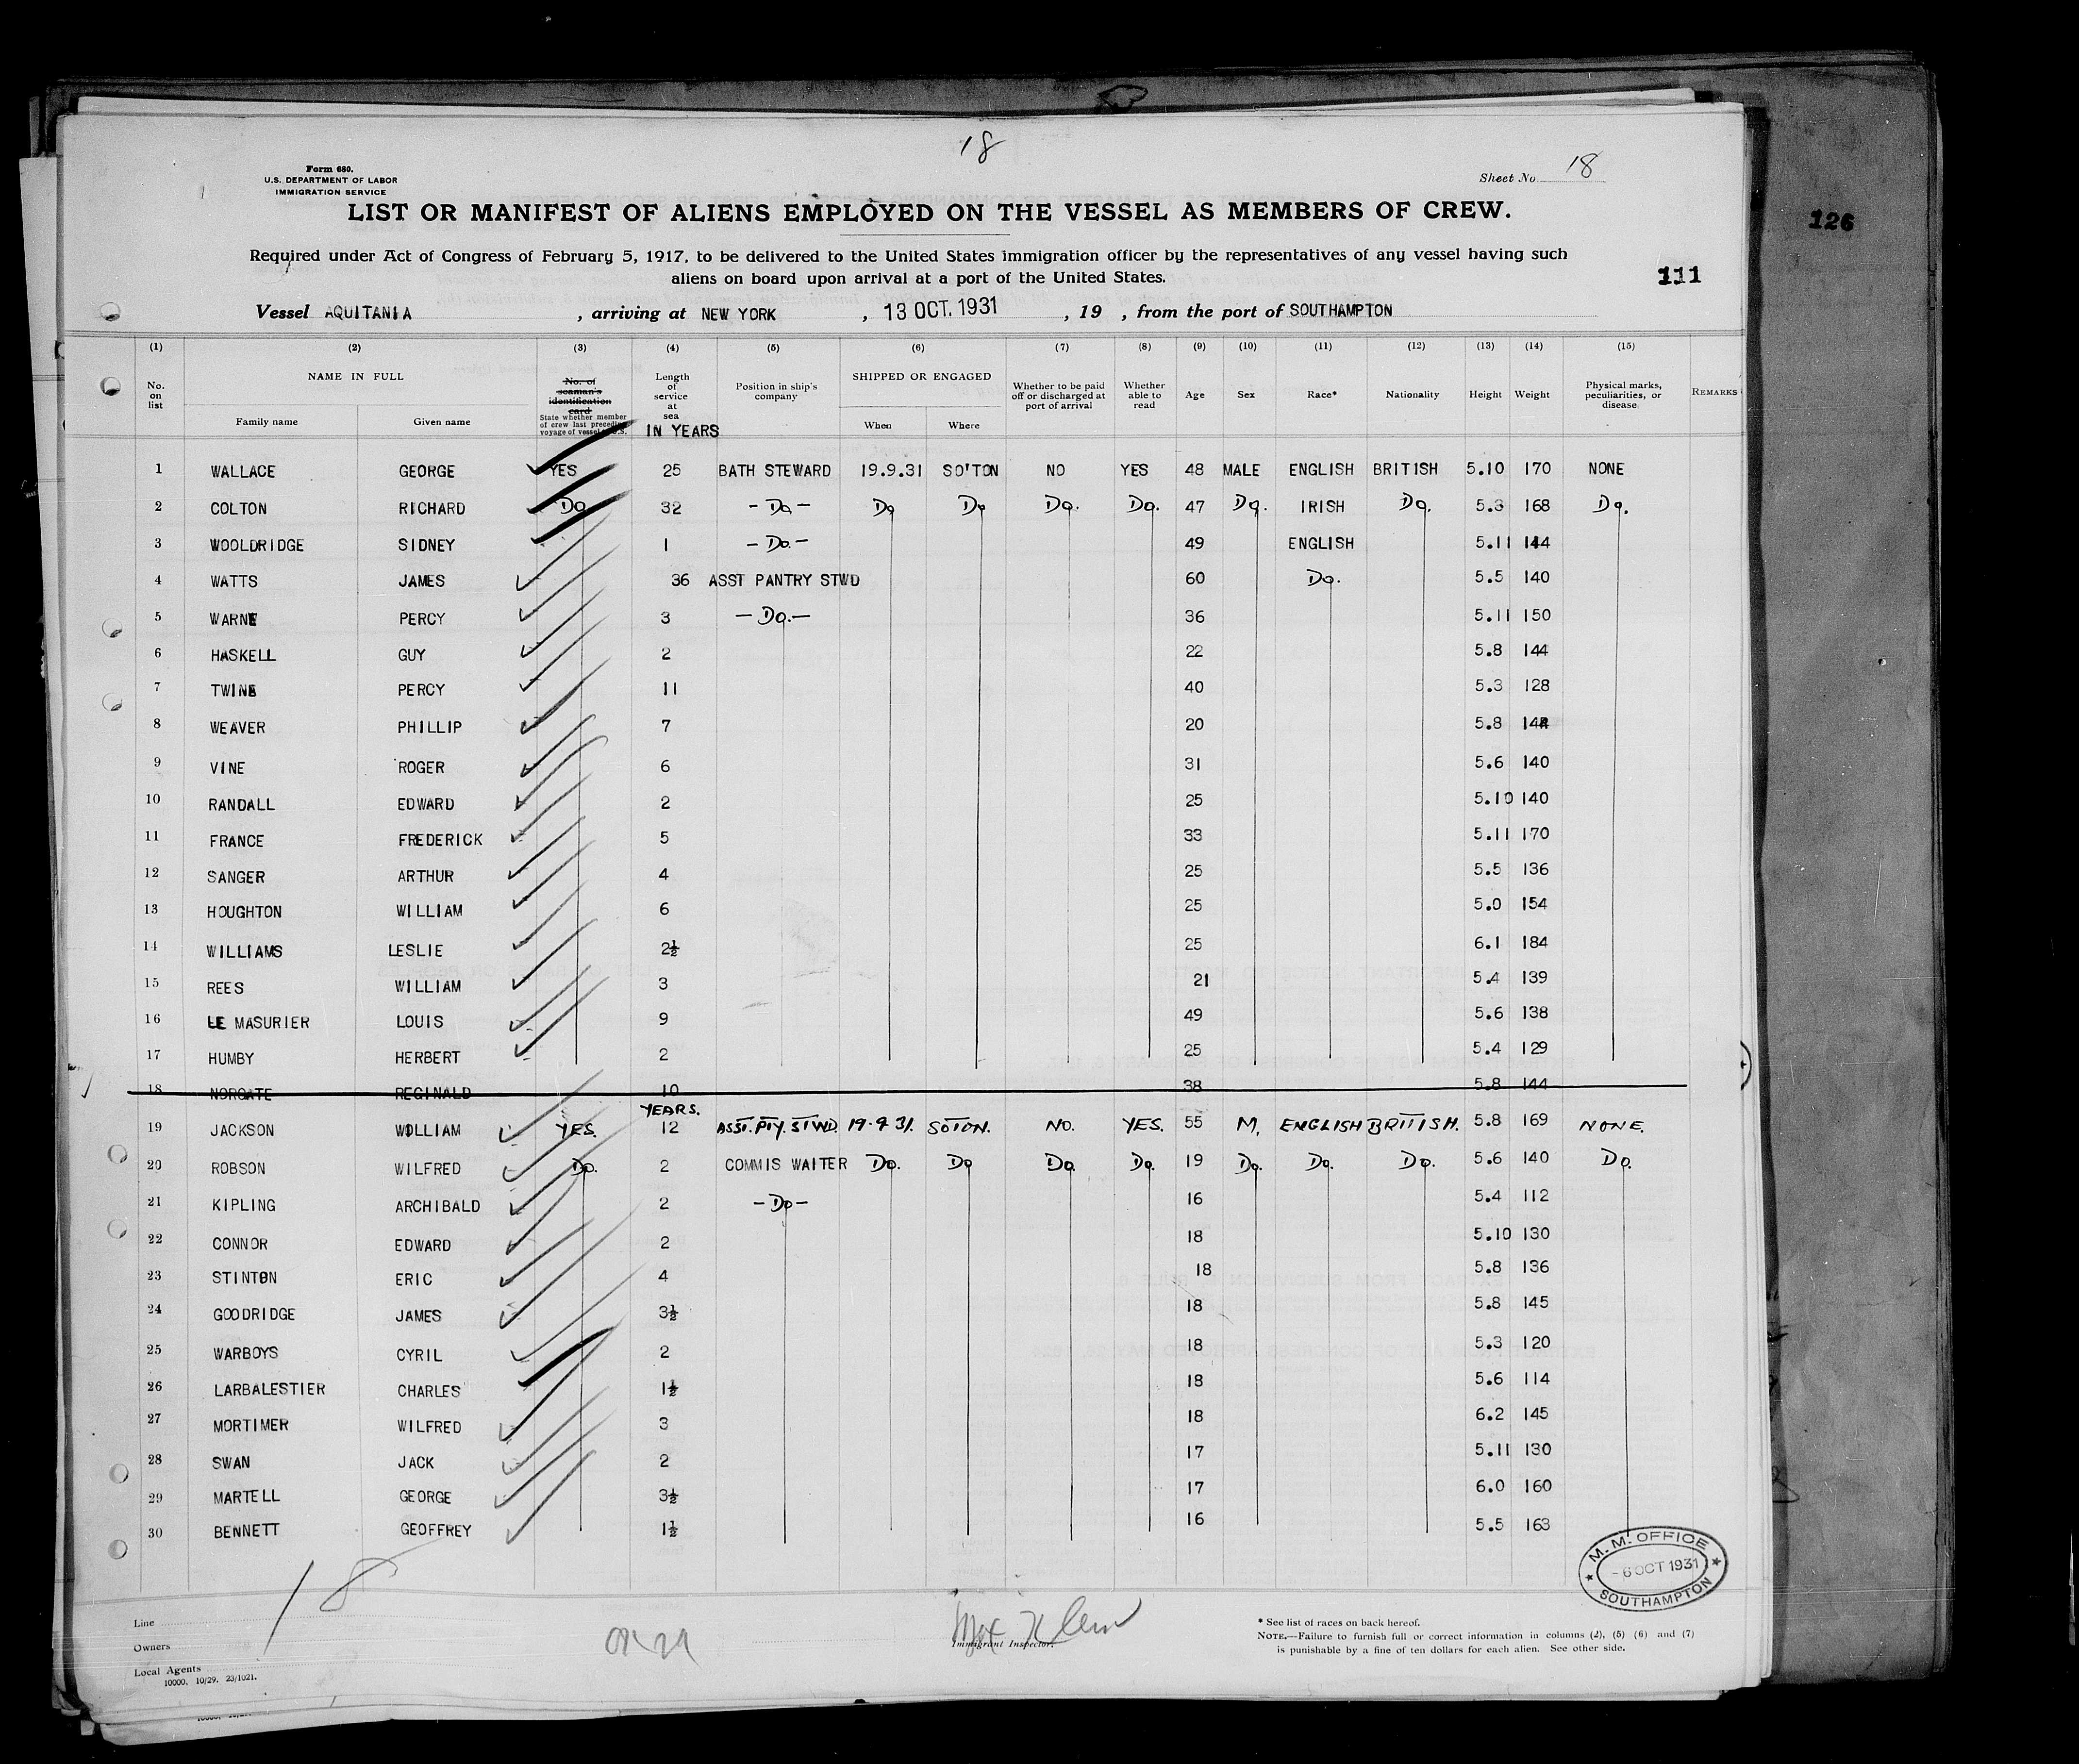 18
Form 680.
U.S. DEPARTMENT OF LABOR
IMMIGRATION SERVICE
Sheet No. 18
LIST OR MANIFEST OF ALIENS EMPLOYED ON THE VESSEL AS MEMBERS OF CREW.
126
Required under Act of Congress of February 5, 1917, to be delivered to the United States immigration officer by the representatives of any vessel having such
aliens on board upon arrival at a port of the United States.
111
Vessel AQUITANIA , arriving at NEW YORK , 13 OCT. 1931 , 19 , from the port of SOUTHAMPTON
(1) (2) (3) (4) (5) (6) (7) (8) (9) (10) (11) (12) (13) (14) (15)
No. on list
NAME IN FULL
Family name Given name
No. of seaman's identification card
State whether member of crew last preceding voyage of vessel to U.S.
Length of service at sea
IN YEARS
Position in ship's company
SHIPPED OR ENGAGED
When Where
Whether to be paid off or discharged at port of arrival
Whether able to read
Age Sex Race* Nationality Height Weight
Physical marks, peculiarities, or disease
REMARKS
1 WALLACE GEORGE YES 25 BATH STEWARD 19.9.31 SO'TON NO YES 48 MALE ENGLISH BRITISH 5.10 170 NONE
2 COLTON RICHARD Do 32 - Do - Do Do Do. Do. 47 Do. IRISH Do. 5.3 168 Do.
3 WOOLDRIDGE SIDNEY 1 - Do. - 49 ENGLISH 5.11 144
4 WATTS JAMES 36 ASST PANTRY STWD 60 Do. 5.5 140
5 WARNE PERCY 3 - Do. - 36 5.11 150
6 HASKELL GUY 2 22 5.8 144
7 TWINE PERCY 11 40 5.3 128
8 WEAVER PHILLIP 7 20 5.8 144
9 VINE ROGER 6 31 5.6 140
10 RANDALL EDWARD 2 25 5.10 140
11 FRANCE FREDERICK 5 33 5.11 170
12 SANGER ARTHUR 4 25 5.5 136
13 HOUGHTON WILLIAM 6 25 5.0 154
14 WILLIAMS LESLIE 2½ 25 6.1 184
15 REES WILLIAM 3 21 5.4 139
16 LE MASURIER LOUIS 9 49 5.6 138
17 HUMBY HERBERT 2 25 5.4 129
18 NORGATE REGINALD 10 38 5.8 144
YEARS.
19 JACKSON WILLIAM YES. 12 ASST. PTY. STWD. 19.9.31. SOTON. NO. YES. 55 M. ENGLISH BRITISH. 5.8 169 NONE.
20 ROBSON WILFRED Do. 2 COMMIS WAITER Do. Do Do Do. 19 Do. Do. Do. 5.6 140 Do.
21 KIPLING ARCHIBALD 2 - Do - 16 5.4 112
22 CONNOR EDWARD 2 18 5.10 130
23 STINTON ERIC 4 18 5.8 136
24 GOODRIDGE JAMES 3½ 18 5.8 145
25 WARBOYS CYRIL 2 18 5.3 120
26 LARBALESTIER CHARLES 1½ 18 5.6 114
27 MORTIMER WILFRED 3 18 6.2 145
28 SWAN JACK 2 17 5.11 130
29 MARTELL GEORGE 3½ 17 6.0 160
30 BENNETT GEOFFREY 1½ 16 5.5 163
M. M. OFFICE
- 6 OCT 1931
SOUTHAMPTON
18
Line
Owners
Local Agents
10000, 10/29. 23/1021.
Immigrant Inspector.
* See list of races on back hereof.
NOTE.—Failure to furnish full or correct information in columns (2), (5) (6) and (7)
is punishable by a fine of ten dollars for each alien. See other side.